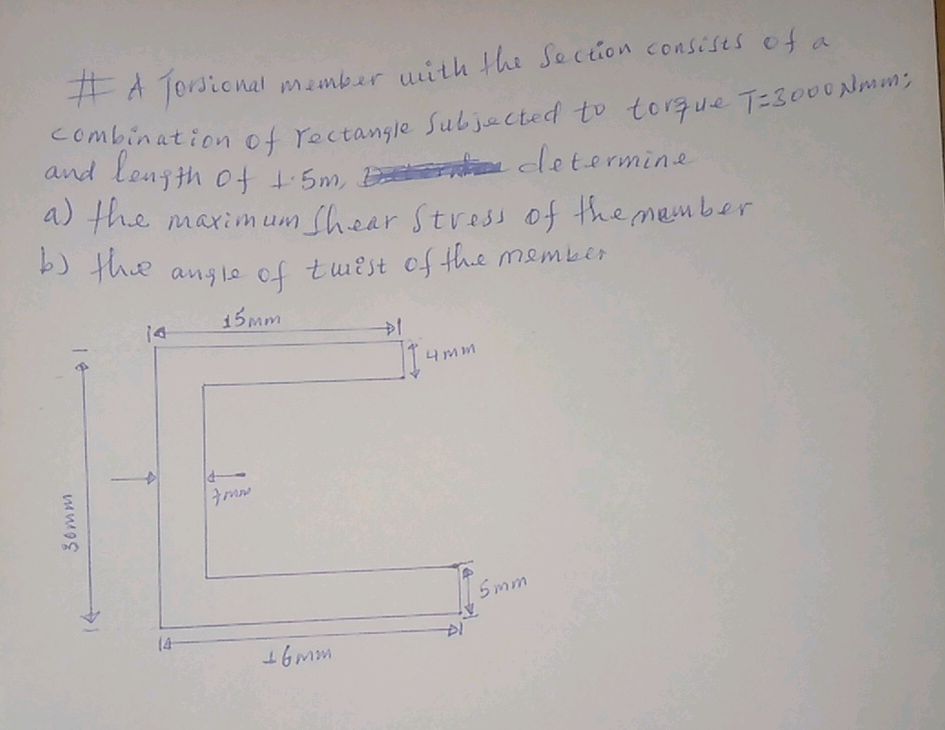 # A Torsional member with the Section consists of a
combination of rectangle Subjected to torque T=3000Nmm;
and length of 1.5m, determine
a) the maximum Shear Stress of the member
b) the angle of twist of the member
15mm
4mm
7mm
30mm
5mm
16mm